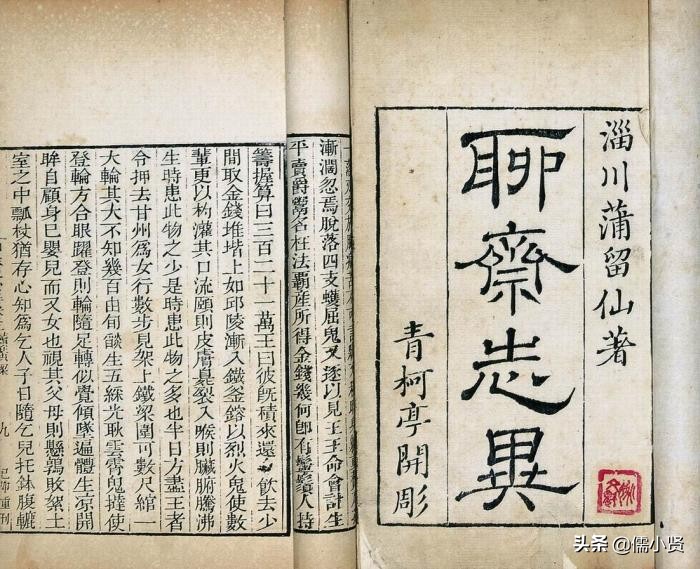 淄川蒲留仙著
聊齋志異
青柯亭開彫
漸濶忽焉脫落四支蠖屈鬼又逐以見王王命會計生
平賣爵鬻名枉法覇産所得金錢幾何卽有鬡鬚人持
籌握算曰三百二十一萬王曰彼旣積來還令飲去少
間取金錢堆堦上如邱陵漸入鐵釜鎔以烈火鬼使數
輩更以杓灌其口流頤則皮膚臭裂入喉則臟腑騰沸
生時患此物之少是時患此物之多也半日方盡王者
令押去甘州爲女行數步見架上鐵梁圍可數尺綰一
大輪其大不知幾百由旬燄生五綵光耿雲霄鬼撻使
登輪方合眼躍登則輪隨足轉似覺傾墜遍體生凉開
眸自顧身已嬰兒而又女也視其父母則懸鶉敗絮土
室之中瓢杖猶存心知爲乞人子日隨乞兒托鉢腹轆
九
重刊
头条 @儒小贤